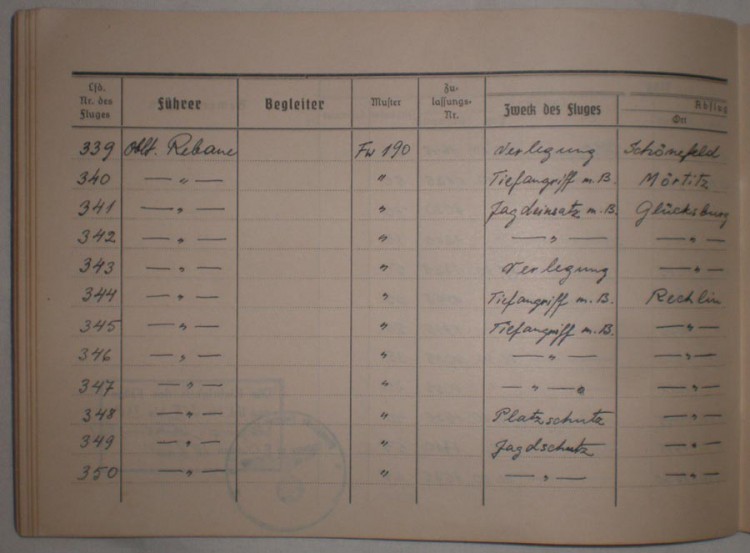 Lfd. Nr. des Fluges Führer Begleiter Muster Zu-lassungs-Nr. Zweck des Fluges Abflug Ort
339 Oblt. Rebane Fw 190 Verlegung Schönefeld
340 — " — " Tiefangriff m.B. Mörtitz
341 — " — " Jagdeinsatz m.B. Glücksburg
342 — " — " — " — — " —
343 — " — " Verlegung — " —
344 — " — " Tiefangriff m.B. Rechlin
345 — " — " Tiefangriff m.B. — " —
346 — " — " — " — — " —
347 — " — " — " — — " —
348 — " — " Platzschutz — " —
349 — " — " Jagdschutz — " —
350 — " — " — " — — " —